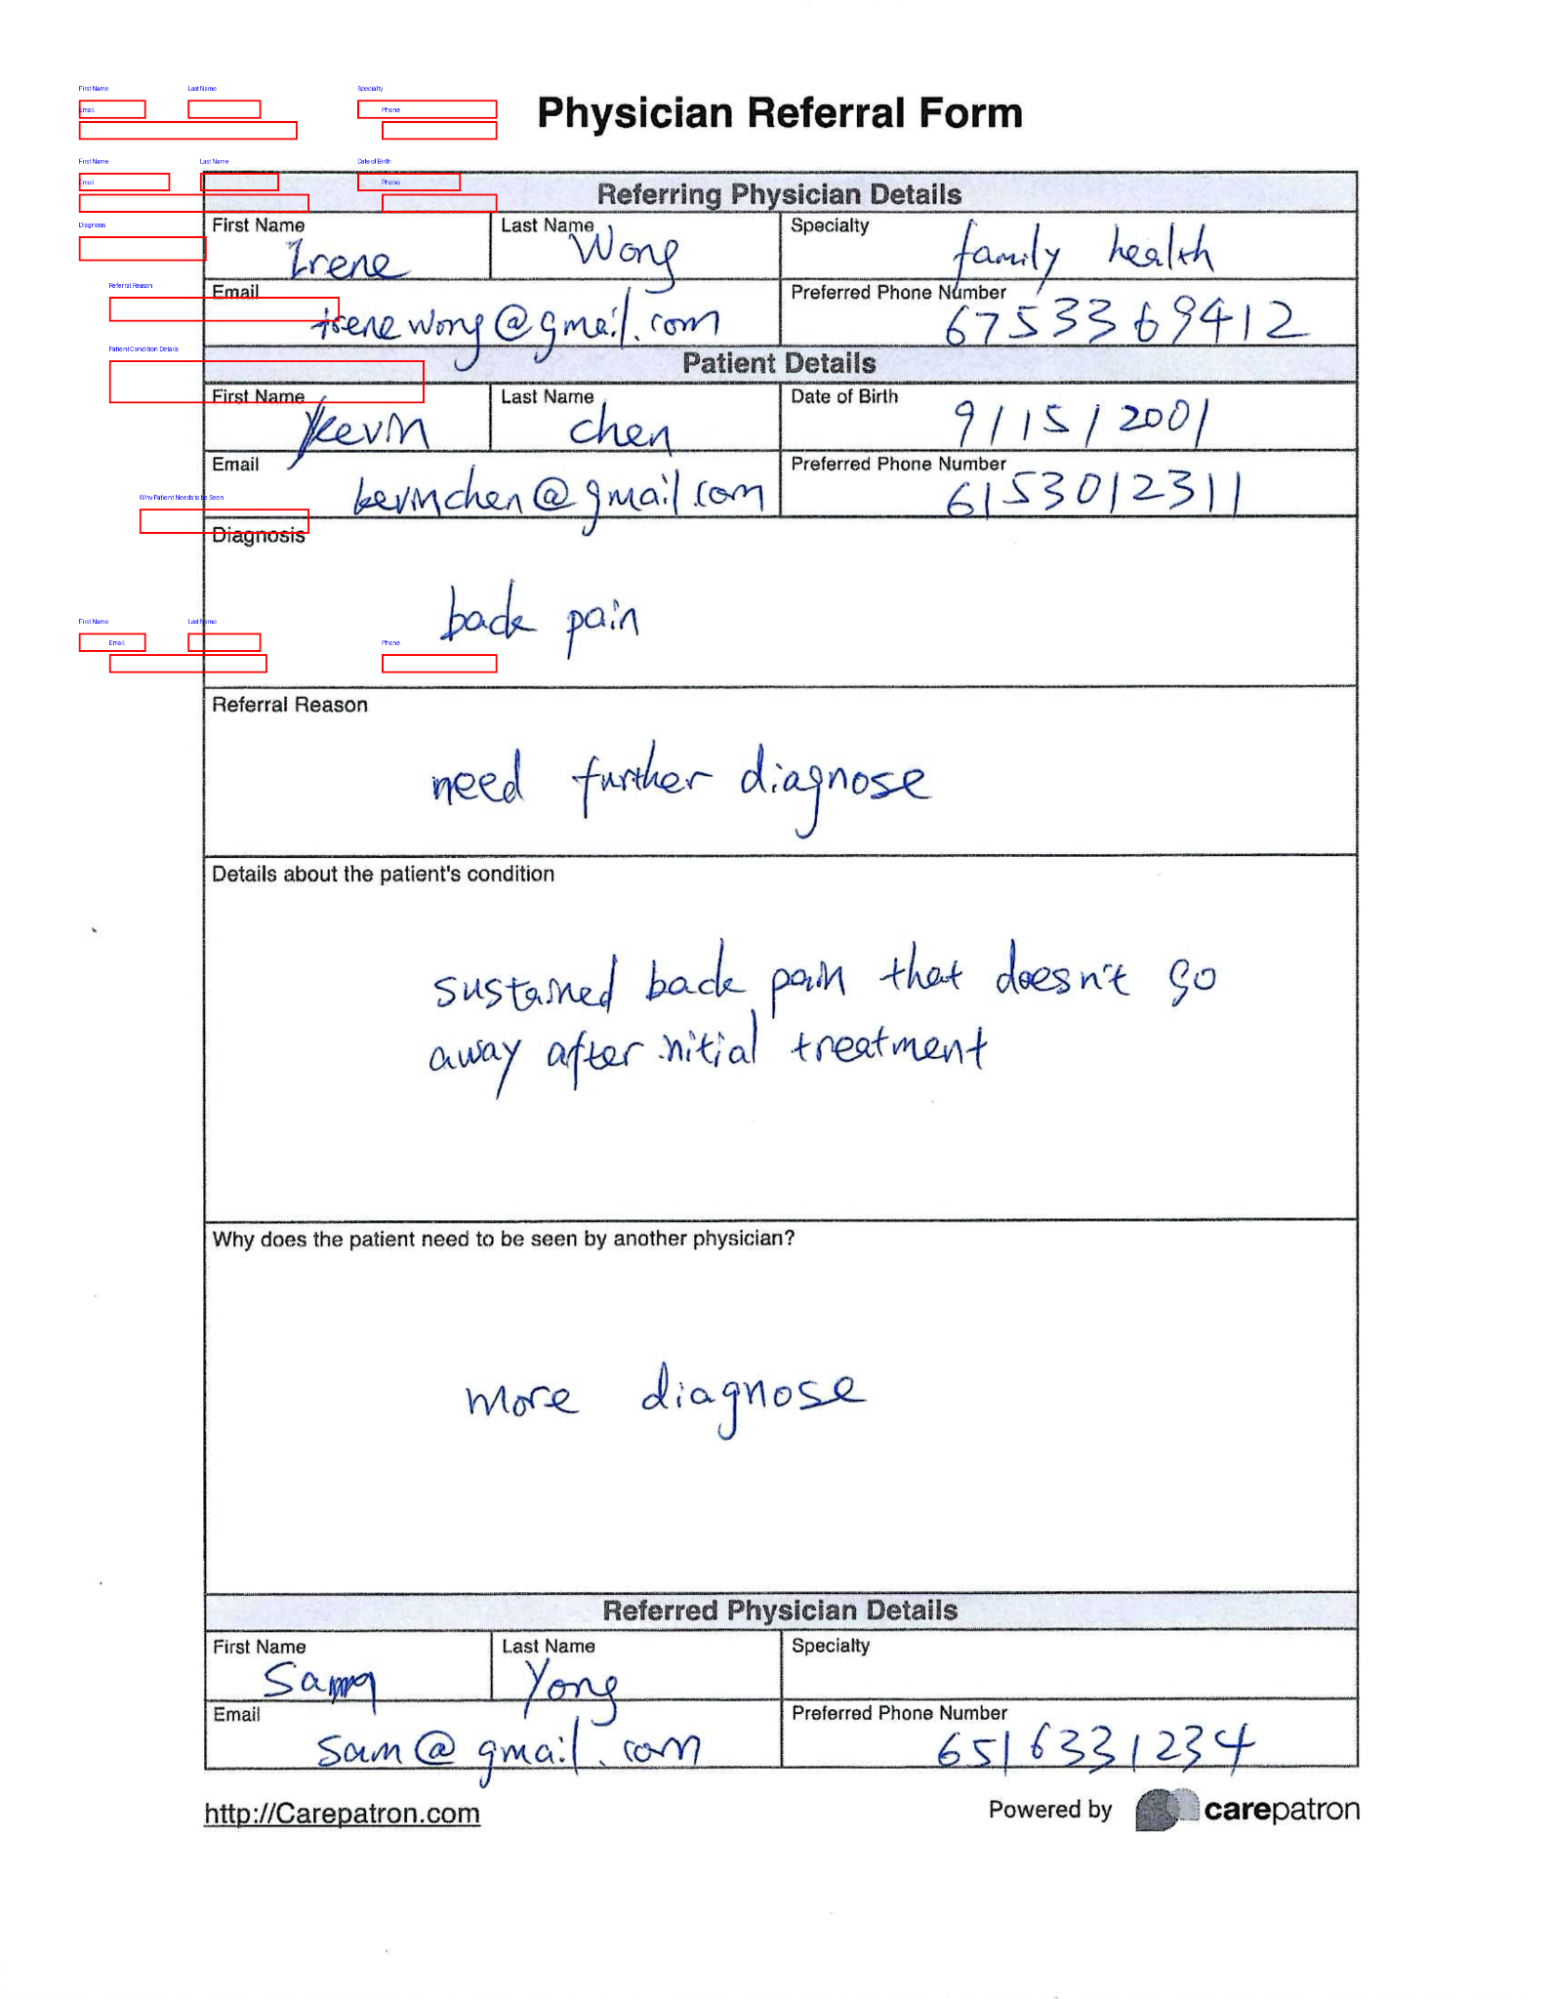 First Name Last Name Specialty
Email Phone
Physician Referral Form
First Name Last Name Date of Birth
Email Phone
Referring Physician Details
Diagnosis
First Name Last Name Specialty
Irene Wong family health
Referral Reason
Email Preferred Phone Number
irenewong@gmail.com 6753369412
Patient Condition Details
Patient Details
First Name Last Name Date of Birth
Kevin chen 9/15/2001
Email Preferred Phone Number
kevinchen@gmail.com 6153012311
Why Patient Needs to be Seen
Diagnosis
back pain
First Name Last Name
Email Phone
Referral Reason
need further diagnose
Details about the patient's condition
sustained back pain that doesn't go
away after initial treatment
Why does the patient need to be seen by another physician?
more diagnose
Referred Physician Details
First Name Last Name Specialty
Yong
Email Preferred Phone Number
sam@gmail.com 6516331234
http://Carepatron.com Powered by carepatron